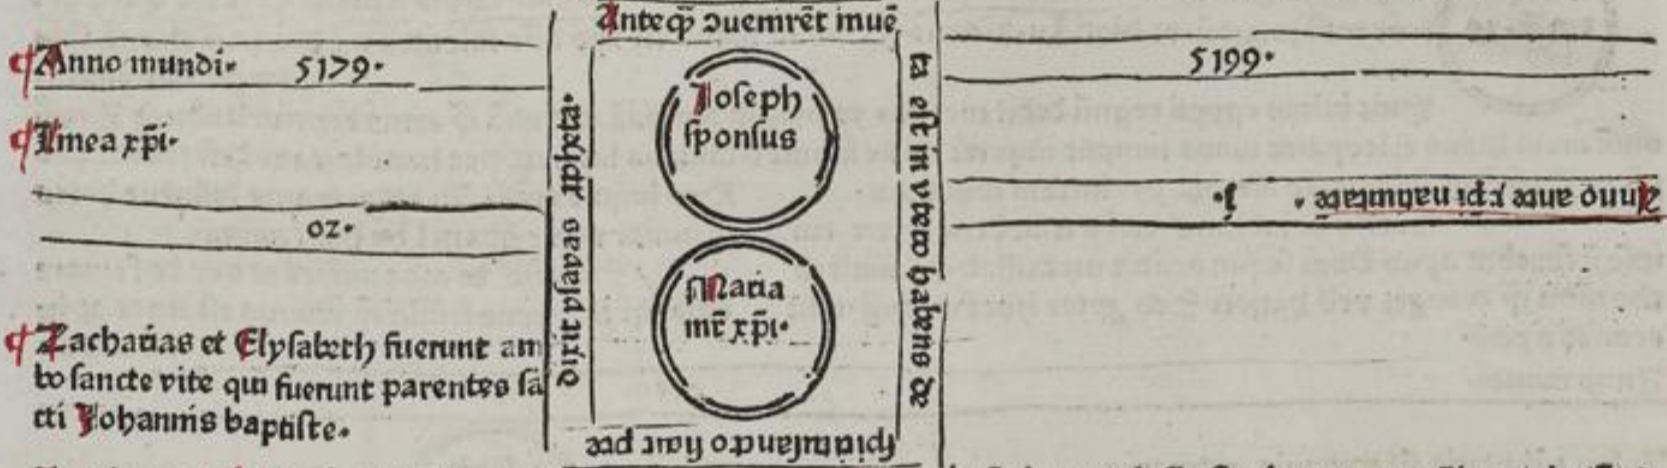 Anno mundi· 5179·
Linea xp̄i·
oz·
Zacharias et Elysabeth fuerunt am
bo sancte vite qui fuerunt parentes sā
cti Johannis baptiste·
Anteq̄ ↄuenirēt inuē
ta est in vtero habens de
spiritusancto
dixit ysayas
Joseph
sponsus
Maria
mr̄ xp̄i·
5199·
Anno ante xp̄i natiuitatē · 1·